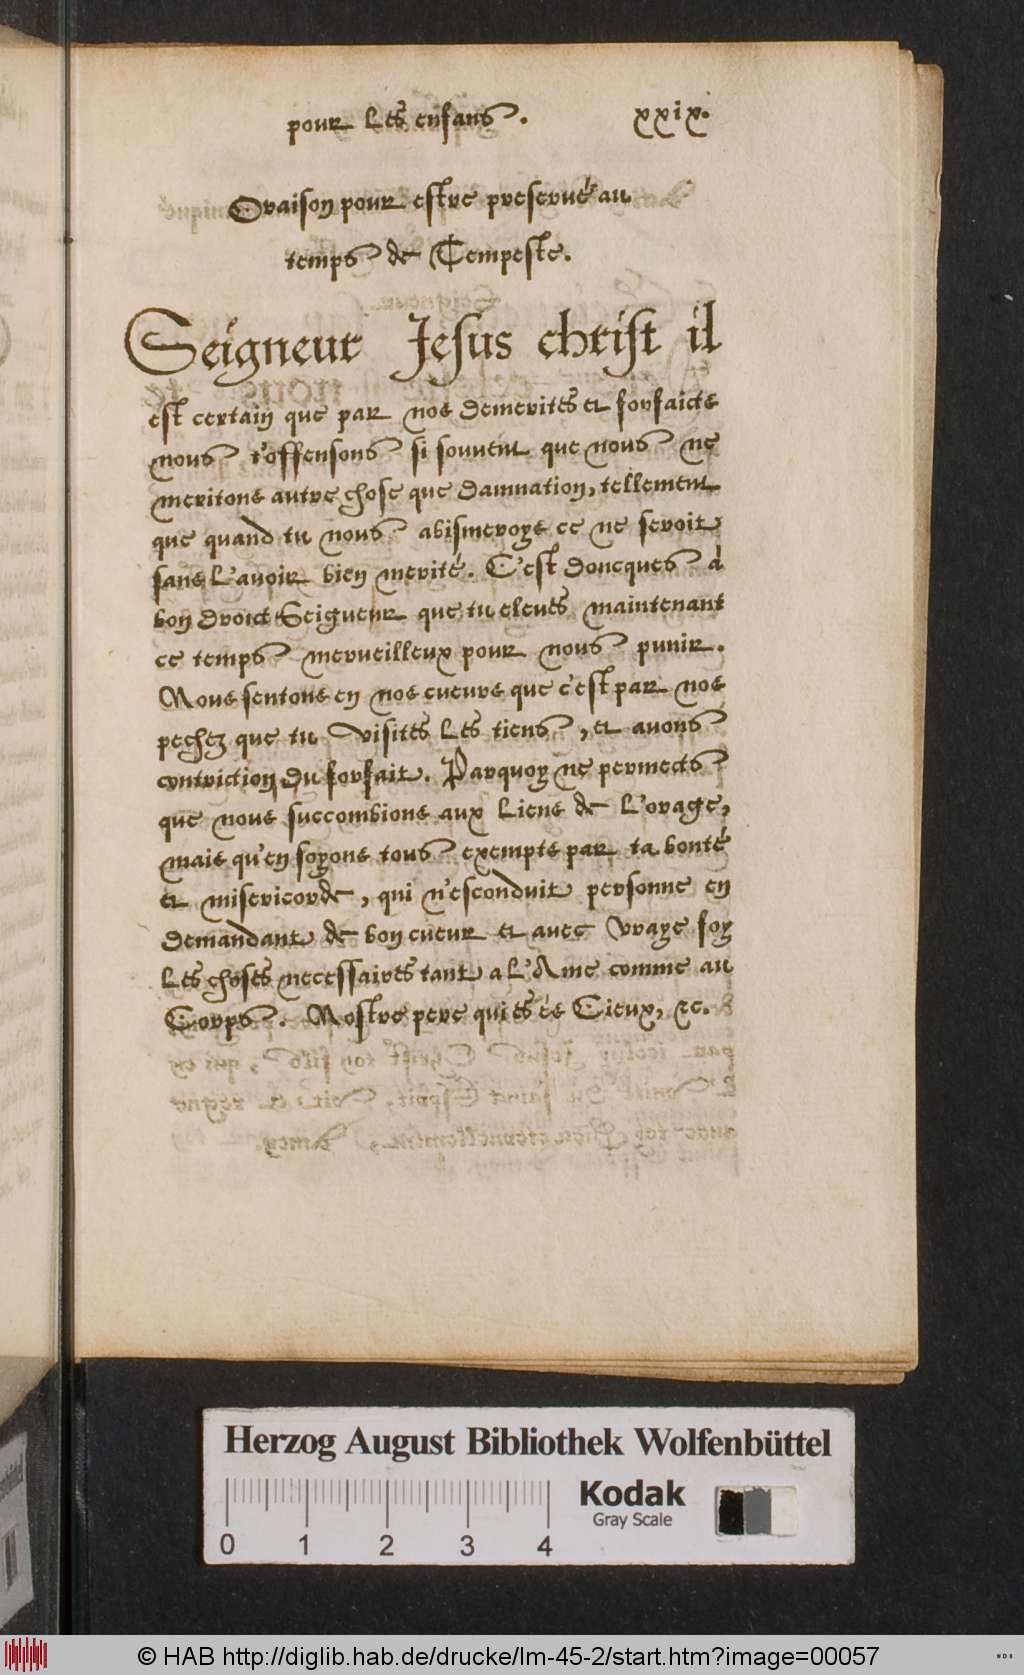 pour les enfans. xxix.
Oraison pour estre preservé au
temps de Tempeste.
Seigneur Jesus christ il
est certain que par nos demerites et forfaicts
nous t'offensons si souvent que nous ne
meritons autre chose que damnation, tellement
que quand tu nous abismeroys ce ne seroit
sans l'avoir bien merité. C'est doncques à
bon droict Seigneur que tu eleves maintenant
ce temps merveilleux pour nous punir.
Nous sentons en nos cueurs que c'est par nos
pechez que tu visites les tiens, et avons
contriction du forfait. Parquoy ne permects
que nous succombions aux liens de l'orage,
mais qu'en soyons tous exempts par ta bonté
et misericorde, qui n'esconduit personne en
demandant de bon cueur et avec vraye foy
les choses necessaires tant a l'Ame comme au
Corps. Nostre pere qui es és Cieux, &c.
Herzog August Bibliothek Wolfenbüttel
Kodak
Gray Scale
0 1 2 3 4
© HAB http://diglib.hab.de/drucke/lm-45-2/start.htm?image=00057